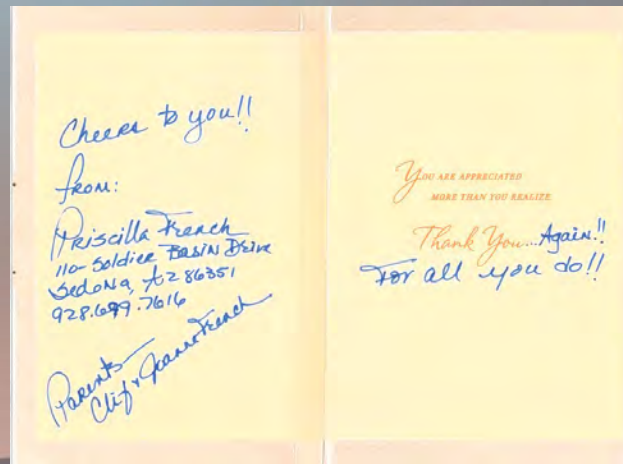 Cheers to you!!
from:
Priscilla French
110 Soldier Basin Drive
Sedona, Az 86351
928.699.7616
Parents
Clif & Jeanne French
You are appreciated
more than you realize
Thank You...Again!!
For all you do!!